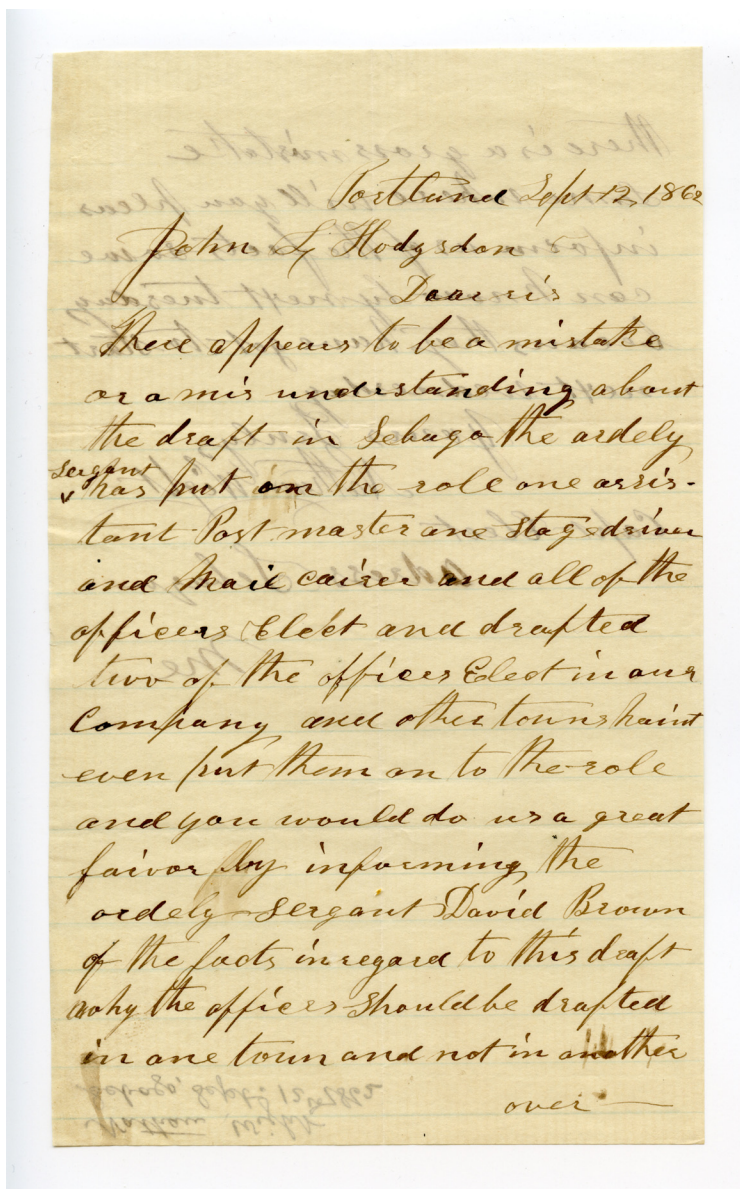 Portland Sept 12, 1862
John L Hodgsdon
Dear sir
There appears to be a mistake
or a mis understanding about
the draft in Sebago the ordely
sergant
has put on the role one assis-
tant Post master one stage driver
and Mail cairer and all of the
officers Elect and drafted
two of the officers Elect in our
Company and other towns haint
even put them on to the role
and you would do us a great
faivor by informing the
ordely Sergant David Brown
of the facts in regard to this draft
why the officers should be drafted
in one town and not in another
over